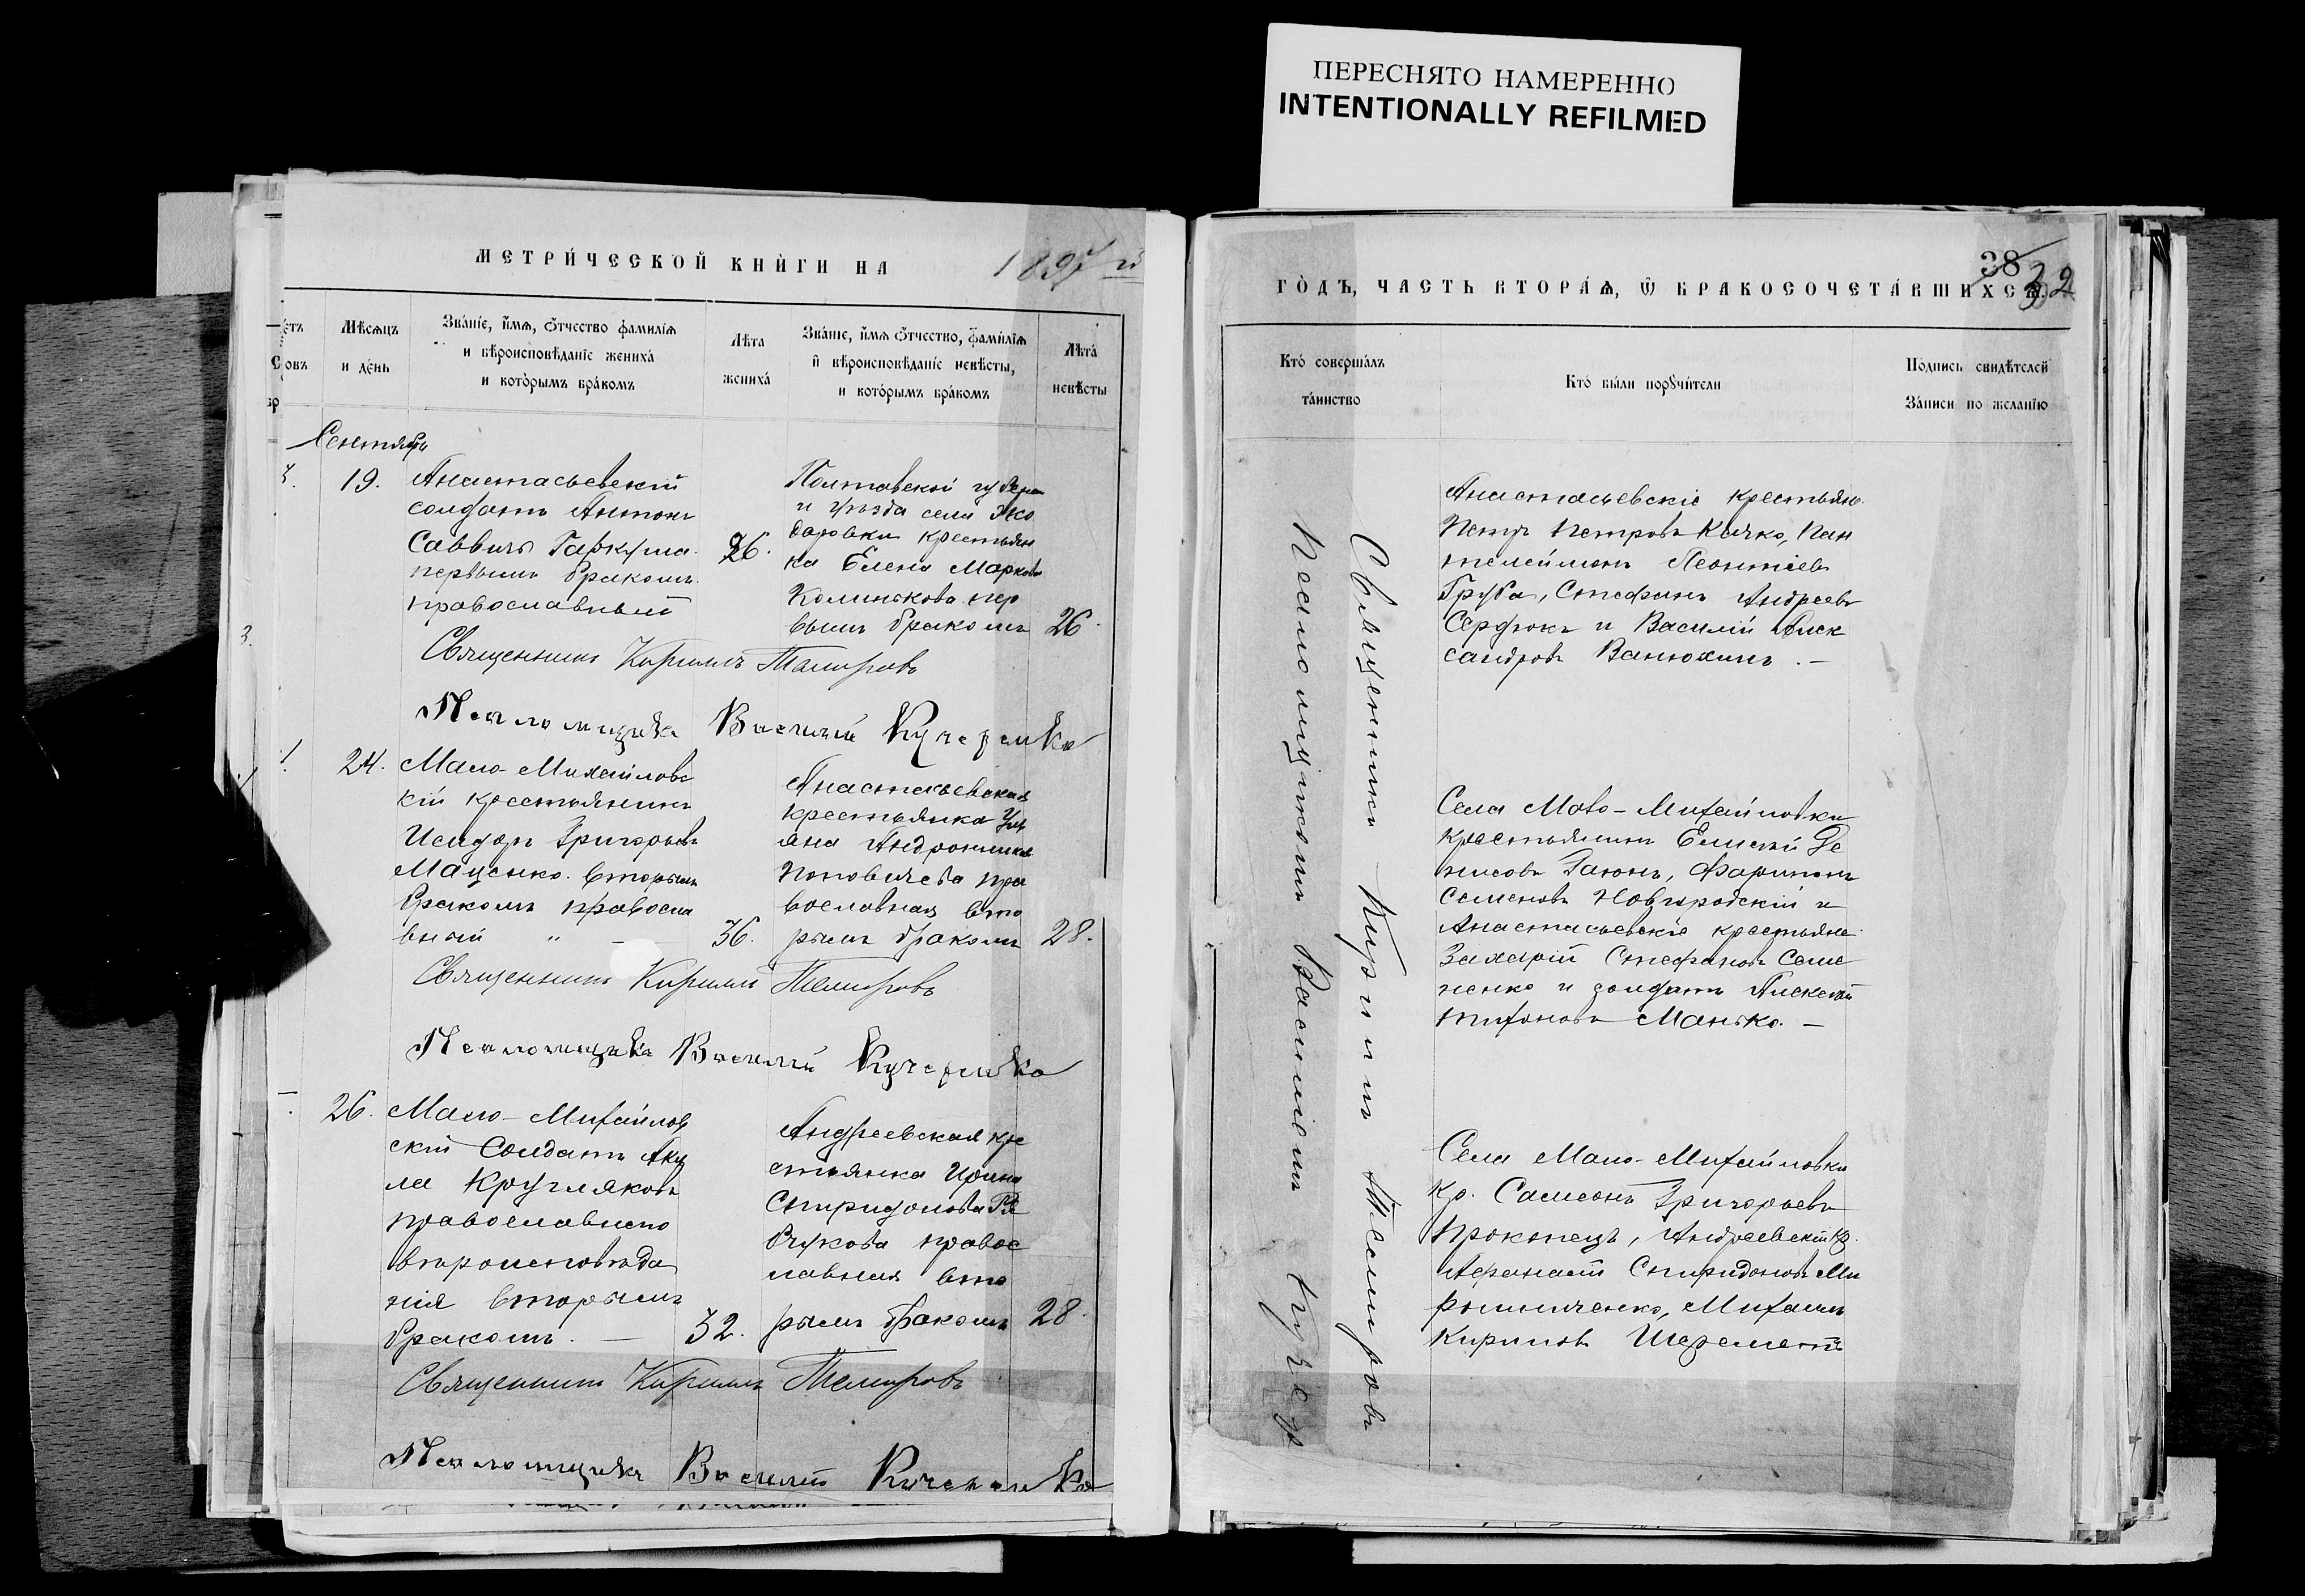 ПЕРЕСНЯТО НАМЕРЕННО
INTENTIONALLY REFILMED
МЕТРИ́ЧЕСКОЙ КНИ́ГИ НА 1897 й
Мѣсѧцъ
и де́нь
Зва́нїе, и҆́мѧ, ѻ҆́тчество фамилїѧ
и вѣроисповѣданїе жениха̀
и кото́рымъ бра́комъ
Лѣта
жениха̀
Зва́нїе, и҆́мѧ ѻ҆́тчество, фами́лїѧ
и҆ вѣроисповѣданїе невѣ́сты,
и кото́рымъ бра́комъ
Лѣта̀
невѣ́сты
Сентябрь
19.
Анастасьевскій
солдатъ Антонъ
Саввичъ Гаркуша
первымъ бракомъ
православный
26.
Полтавской губерн
и уѣзда села
крестьян
ка Елена Маркова
пер
вымъ бракомъ
26
Священникъ Кириллъ Темировъ
Псаломщикъ Василій Кучеренко
24.
Мало-Михайловс
кій крестьянинъ
Исидоръ Григорьевъ
Маценко. вторымъ
бракомъ правосла
вный " —
36.
Анастасьевская
крестьянка Уль
яна Андроникова
Поповичева пра
вославная вто
рымъ бракомъ
28.
Священникъ Кириллъ Темировъ
Псаломщикъ Василій Кучеренко
26.
Мало-Михайлов
скій Солдатъ Аки
ла Кругляковъ
православнаго
вѣроисповѣда
нія вторымъ
бракомъ. —
32.
Андреевская кре
стьянка Ирина
Спиридонова
правос
лавная вто
рымъ бракомъ
28.
Священникъ Кириллъ Темировъ
Псаломщикъ Василій Кучеренко
38
32
ГО́ДЪ, ЧАСТЬ ВТОРА́Ѧ, Ѽ БРАКОСОЧЕТА́ВШИХСѦ.
Кто́ соверша́лъ
та́инство
Кто́ бы́ли порꙋчи́тели
По́дпись свидѣ́телей
За́писи по жела́нїю
Священникъ Кириллъ Темировъ
Псаломщикъ Василій Кучер
Анастасьевскіе крестьяне
Петръ Петровъ Качко, Пан
телеймонъ Леонтіевъ
Груба, Стефанъ Андреевъ
Сердюкъ и Василій Алек
сандровъ Ванюхинъ. —
Села Мало-Михайловки
крестьянинъ Елисей Де
нисовъ Гаюнъ, Филимонъ
Семеновъ Новгородскій и
Анастасьевскіе крестьяне
Захарій Стефановъ Семе
ненко и солдатъ Алексѣй
Тифоновъ Манько. —
Села Мало-Михайловки
Кр. Самсонъ Григорьевъ
Прокопецъ, Андреевскій Кр.
Афанасій Спиридоновъ Ми
рошниченко, Михаилъ
Кириловъ Шереметъ